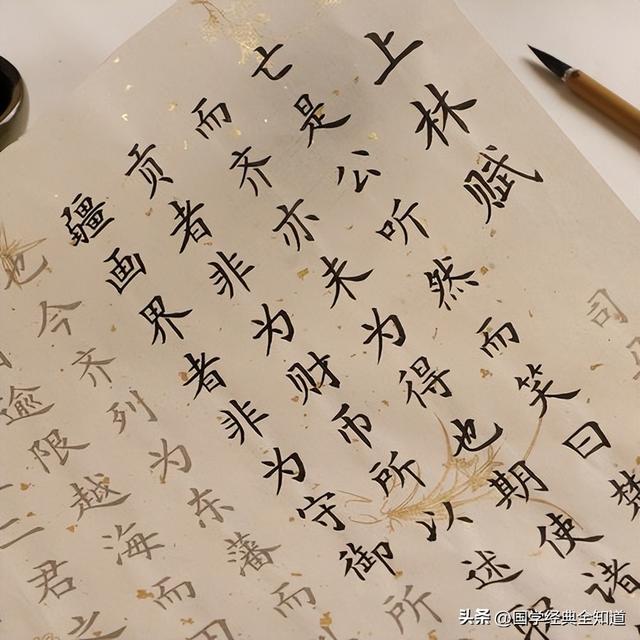 上林赋 司
亡是公听然而笑曰楚
而齐亦未为得也期使诸
贡者非为财币所以述
疆画界者非为守御所
也今齐列为东藩而
逾限越海而
二君之
头条 @国学经典全知道